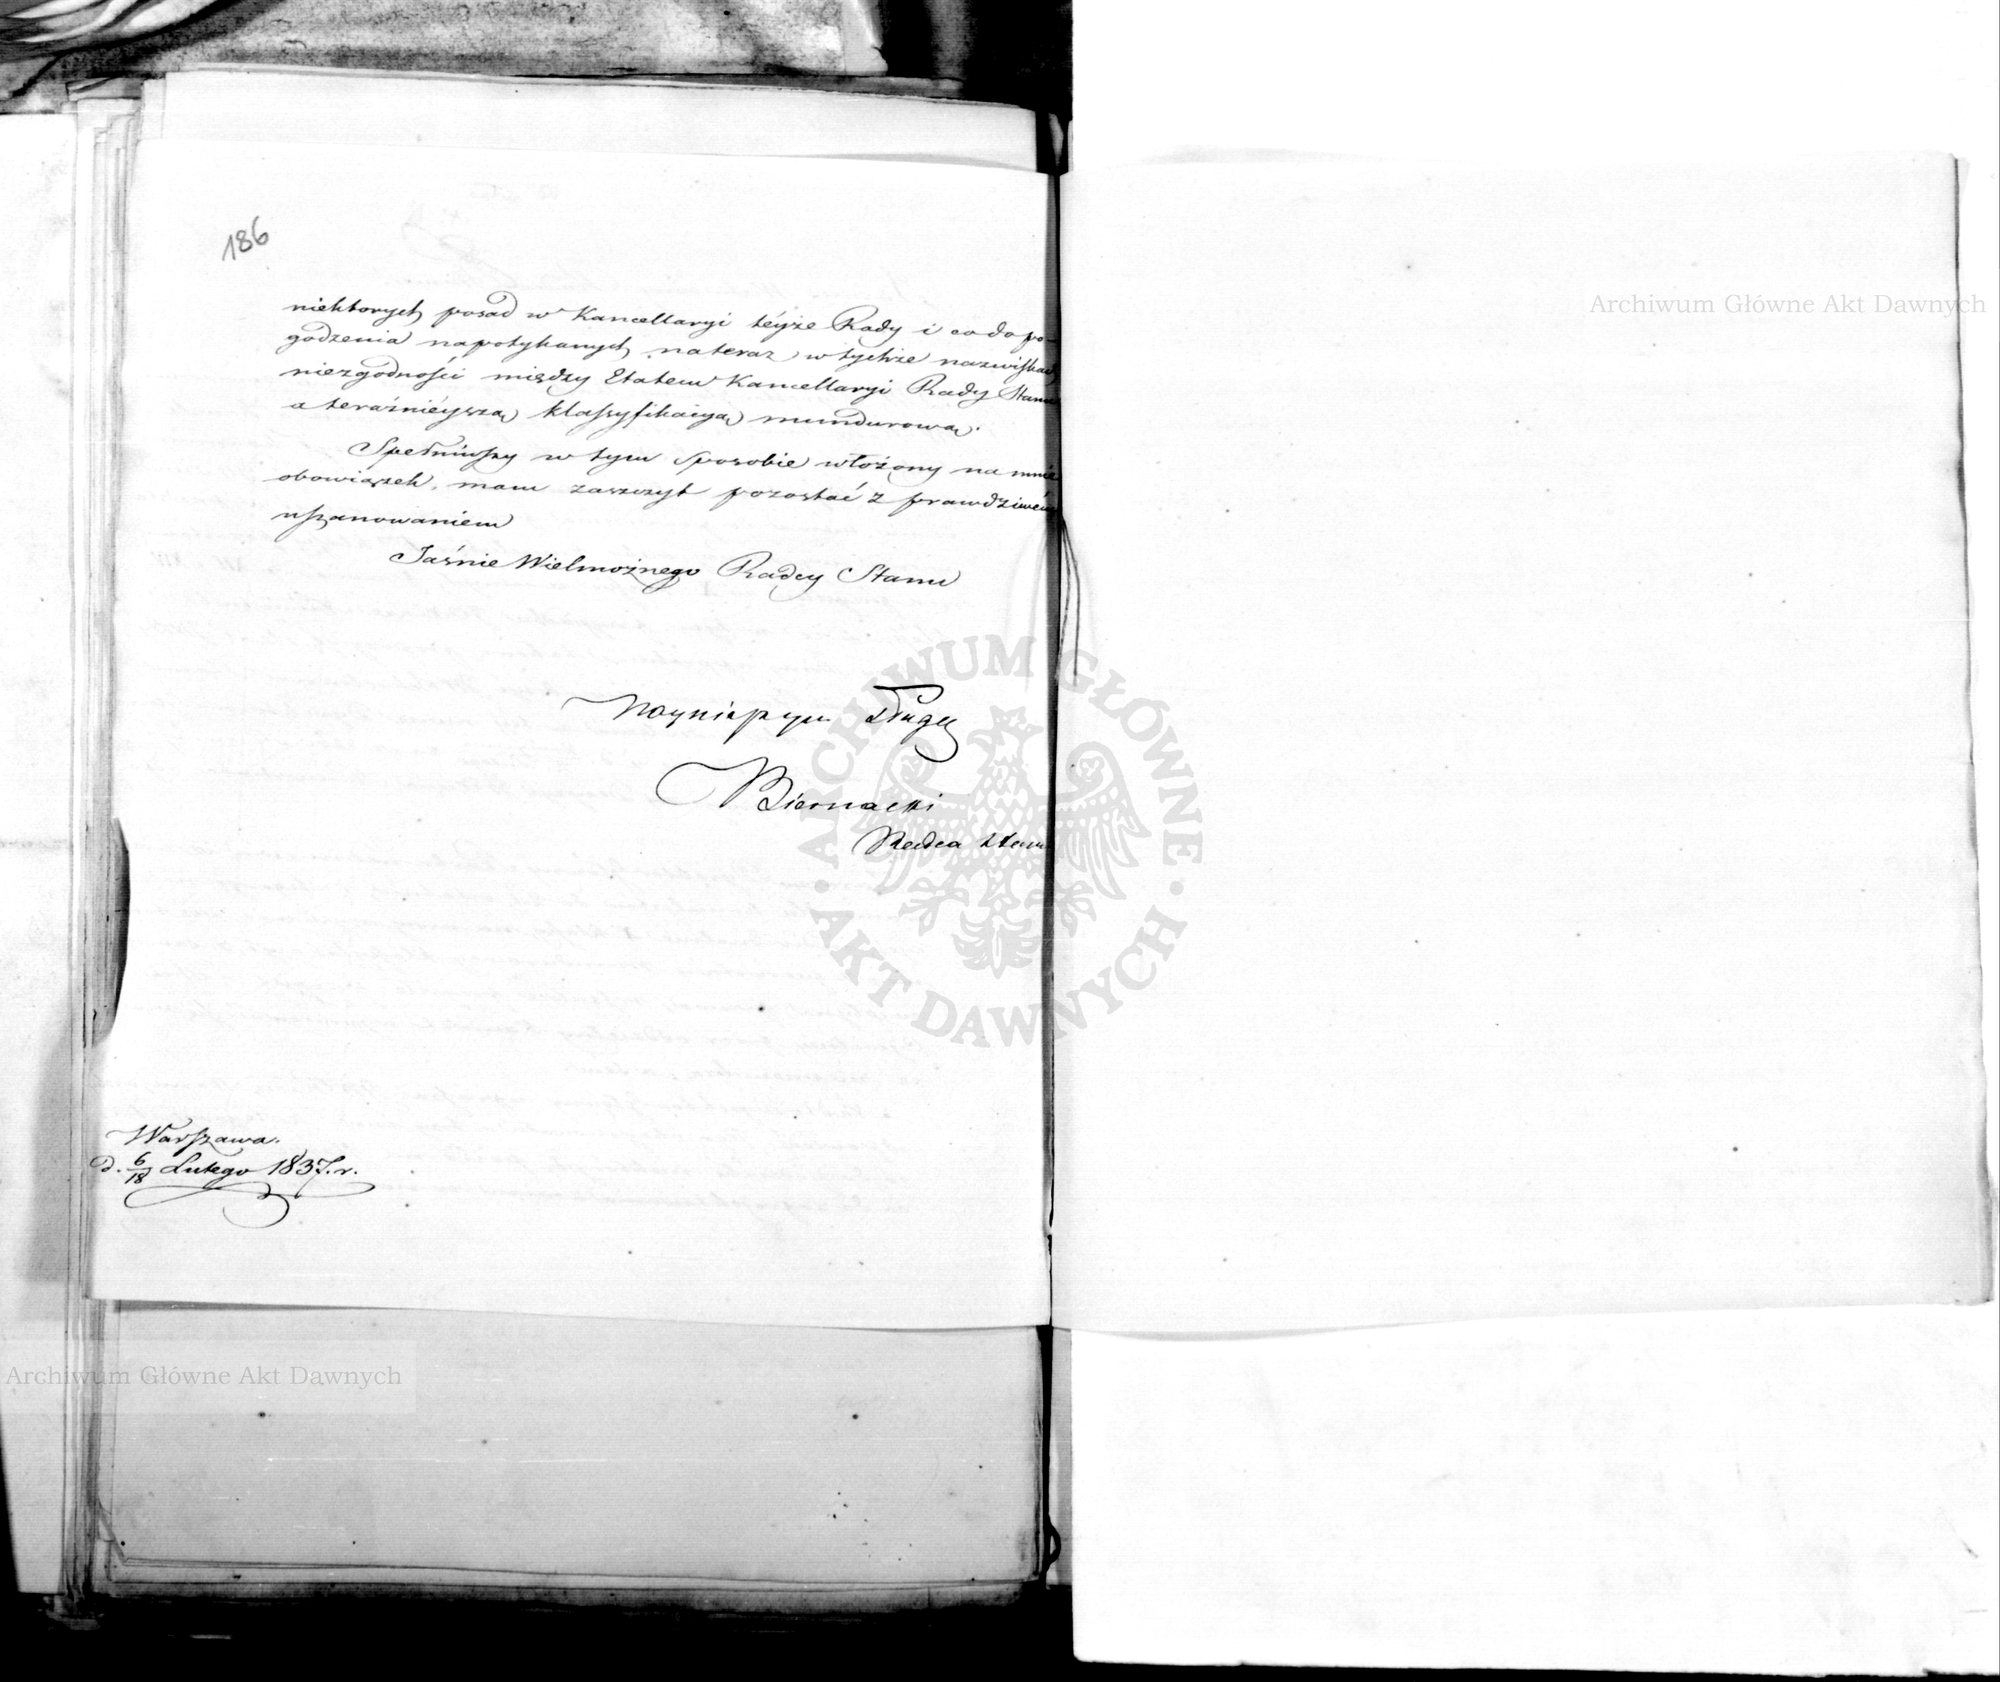 186
niektorych posad w Kancellaryi téyże Rady i co do po-
godzenia napotykanych nateraz w tychże nazwiskach
niezgodności między Etatem Kancellaryi Rady Stanu
a teraźnieyszą klassyfikacyą mundurową.
Spełniwszy w tym sposobie włożony na mnie
obowiązek, mam zaszczyt pozostać z prawdziwém
uszanowaniem
Jaśnie Wielmożnego Radcy Stanu
Nayniższym Sługą
Biernacki
Radca Stanu
Warszawa.
d. 6/18 Lutego 1837. r.
Archiwum Główne Akt Dawnych
Archiwum Główne Akt Dawnych
ARCHIWUM GŁÓWNE
AKT DAWNYCH